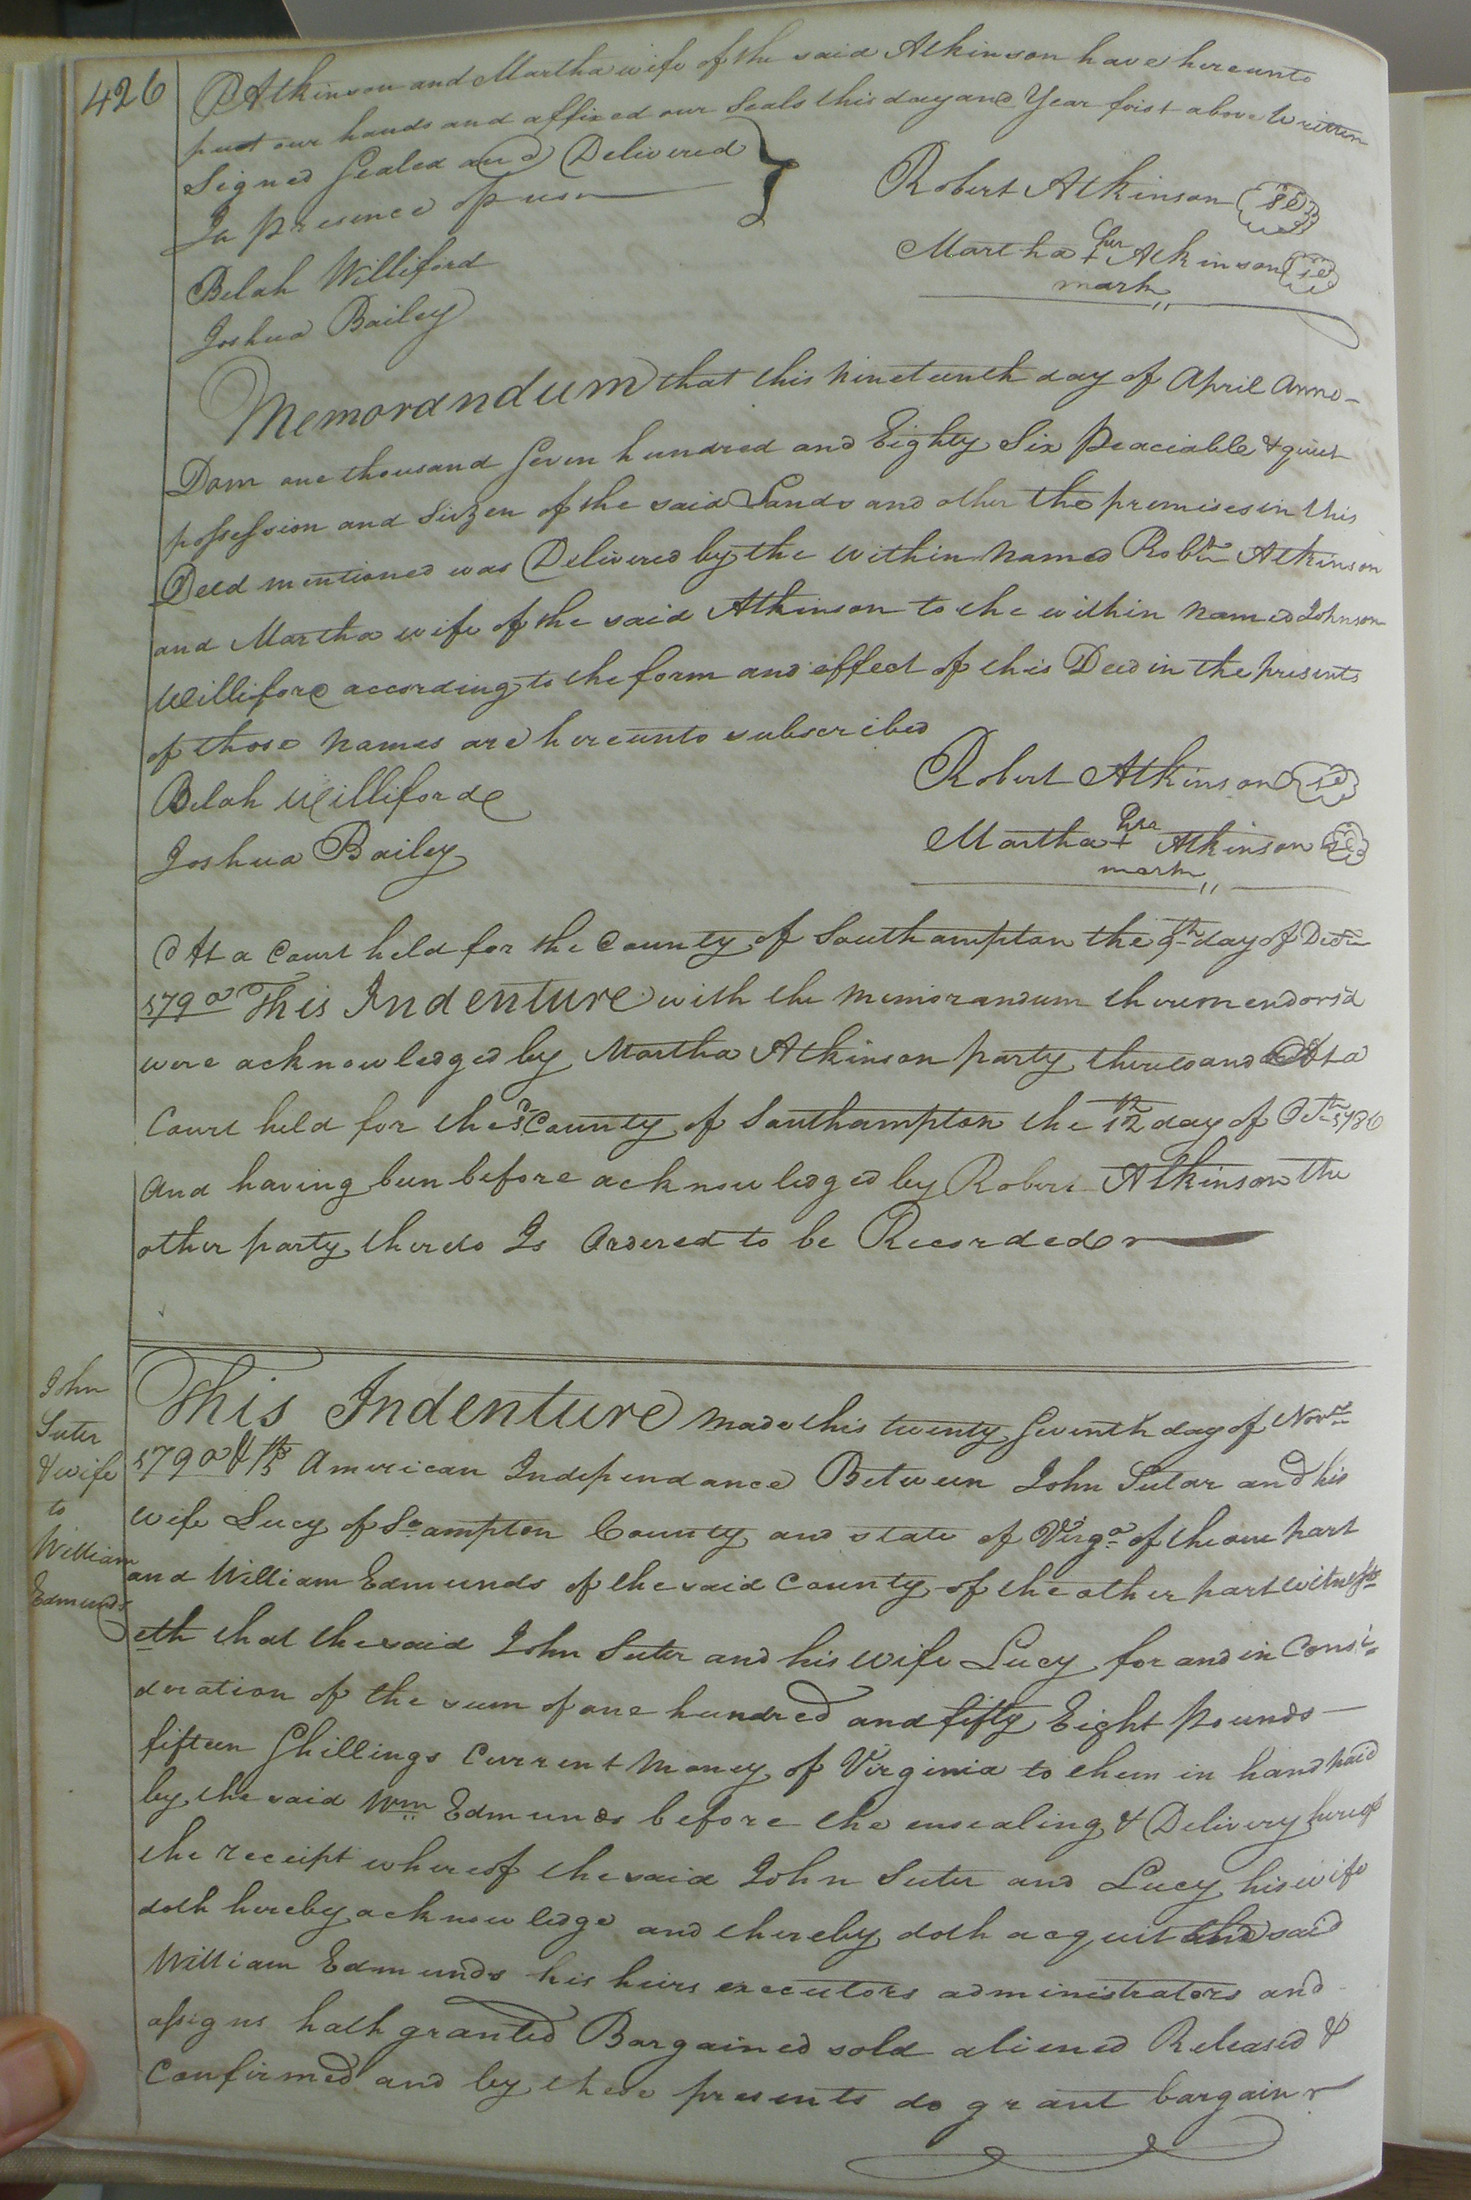 426
Atkinson and Martha wife of the said Atkinson have hereunto
put our hands and affixed our Seals this day and Year first above Written
Signed Sealed and Delivered
In presence of us
Robert Atkinson Se
Martha her + mark Atkinson Se
Belah Williford
Joshua Bailey
Memorandum that this Nineteenth day of April Anno-
Dom one thousand Seven hundred and Eighty Six Peaciable & quiet
possession and Siezen of the said Lands and other the premises in this
Deed mentioned was Delivered by the within Named Robt. Atkinson
and Martha wife of the said Atkinson to the within Named Johnson
Williford according to the form and effect of this Deed in the presents
of those Names are hereunto subscribed
Robert Atkinson Se
Martha her + mark Atkinson Se
Belah Williford
Joshua Bailey
At a Court held for the County of Southampton the 9th day of Decr.
1790 This Indenture with the Memorandum thereon endors'd
were acknowledged by Martha Atkinson party thereto and At a
Court held for the sd County of Southampton the 12th day of Octr. 1786
And having been before acknowledged by Robert Atkinson the
other party thereto Is Ordered to be Recorded
John
Suter
& wife
to
William
Edmunds
This Indenture Made this twenty Seventh day of Novr.
1790 & 15th American Independance Between John Sutar and his
wife Lucy of So.ampton County and state of Virga. of the one part
and William Edmunds of the said County of the other part witness
eth that the said John Suter and his wife Lucy for and in Consi-
deration of the sum of one hundred and fifty Eight Pounds
fifteen Shillings Current Money of Virginia to them in hand paid
by the said Wm Edmunds before the ensealing & Delivery hereof
the receipt whereof the said John Suter and Lucy his wife
doth hereby acknowledge and thereby doth acquit the said
William Edmunds his heirs executors administrators and
assigns hath granted Bargained sold aliened Released &
Confirmed and by these presents do grant bargain